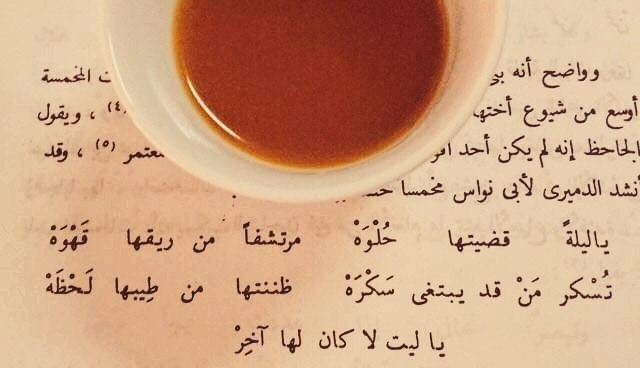 وواضح أنه ت المخمسة
أوسع من شيوع أختها (٤) ، ويقول
الجاحظ إنه لم يكن أحد معتمر (٥) ، وقد
أنشد الدميرى لأبى نواس مخمسا
ياليلةً قضيتها حُلْوَهْ مرتشفاً من ريقها قَهْوَهْ
تُسْكر مَنْ قد يبتغى سَكْرَهْ ظننتها من طِيبها لَحْظَهْ
يا ليت لا كان لها آخِرْ